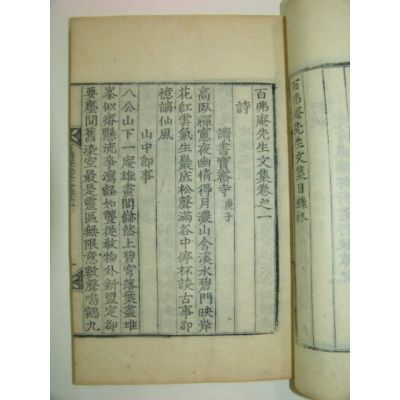 百弗庵先生文集目錄終
百弗庵先生文集卷之一
詩
讀書寶齋寺 庚子
高臥禪窻夜幽情得月濃山含溪水碧門映岸
花紅雲氣生巖底松聲滿谷中停杯談古事卻
憶謫仙風
山中卽事
八公山下一庵雄畫閣翛然上碧宮落葉盡堆
峯似懸流爭瀉如聾從敎物外新盟定卻
要塵間舊染空最是靈區無限意數聲鳴鶴九